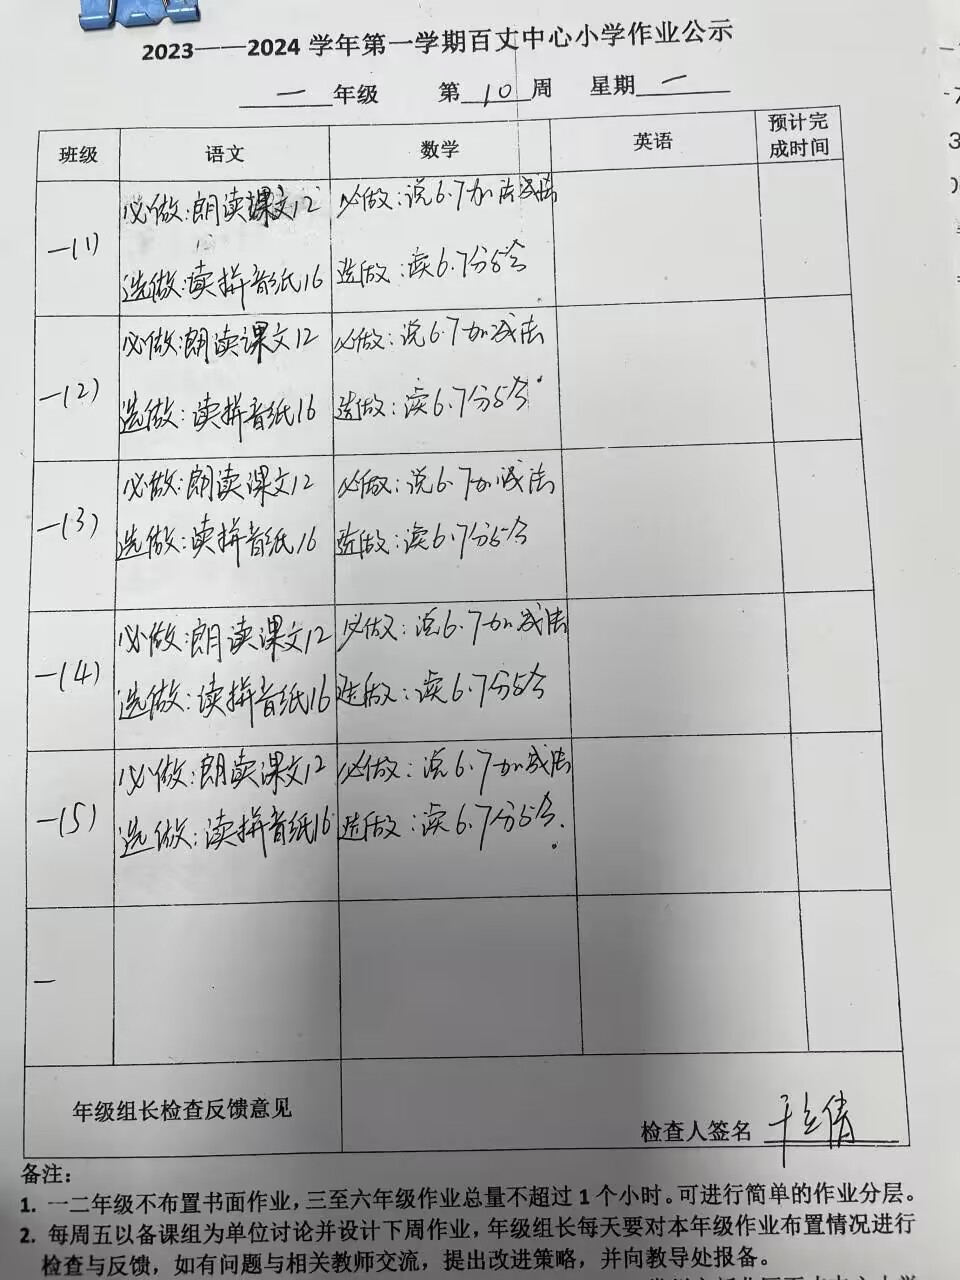 2023——2024 学年第一学期百丈中心小学作业公示
一 年级 第 10 周 星期 一
班级 语文 数学 英语 预计完成时间
一(1)
必做:朗读课文12
选做:读拼音纸16
必做:说6.7加法减法
选做:读6.7分与合
一(2)
必做:朗读课文12
选做:读拼音纸16
必做:说6.7加减法
选做:读6.7分与合
一(3)
必做:朗读课文12
选做:读拼音纸16
必做:说6.7加减法
选做:读6.7分与合
一(4)
必做:朗读课文12
选做:读拼音纸16
必做:说6.7加减法
选做:读6.7分与合
一(5)
必做:朗读课文12
选做:读拼音纸16
必做:说6.7加减法
选做:读6.7分与合.
一
年级组长检查反馈意见
检查人签名
备注:
1. 一二年级不布置书面作业,三至六年级作业总量不超过 1 个小时。可进行简单的作业分层。
2. 每周五以备课组为单位讨论并设计下周作业,年级组长每天要对本年级作业布置情况进行
检查与反馈,如有问题与相关教师交流,提出改进策略,并向教导处报备。